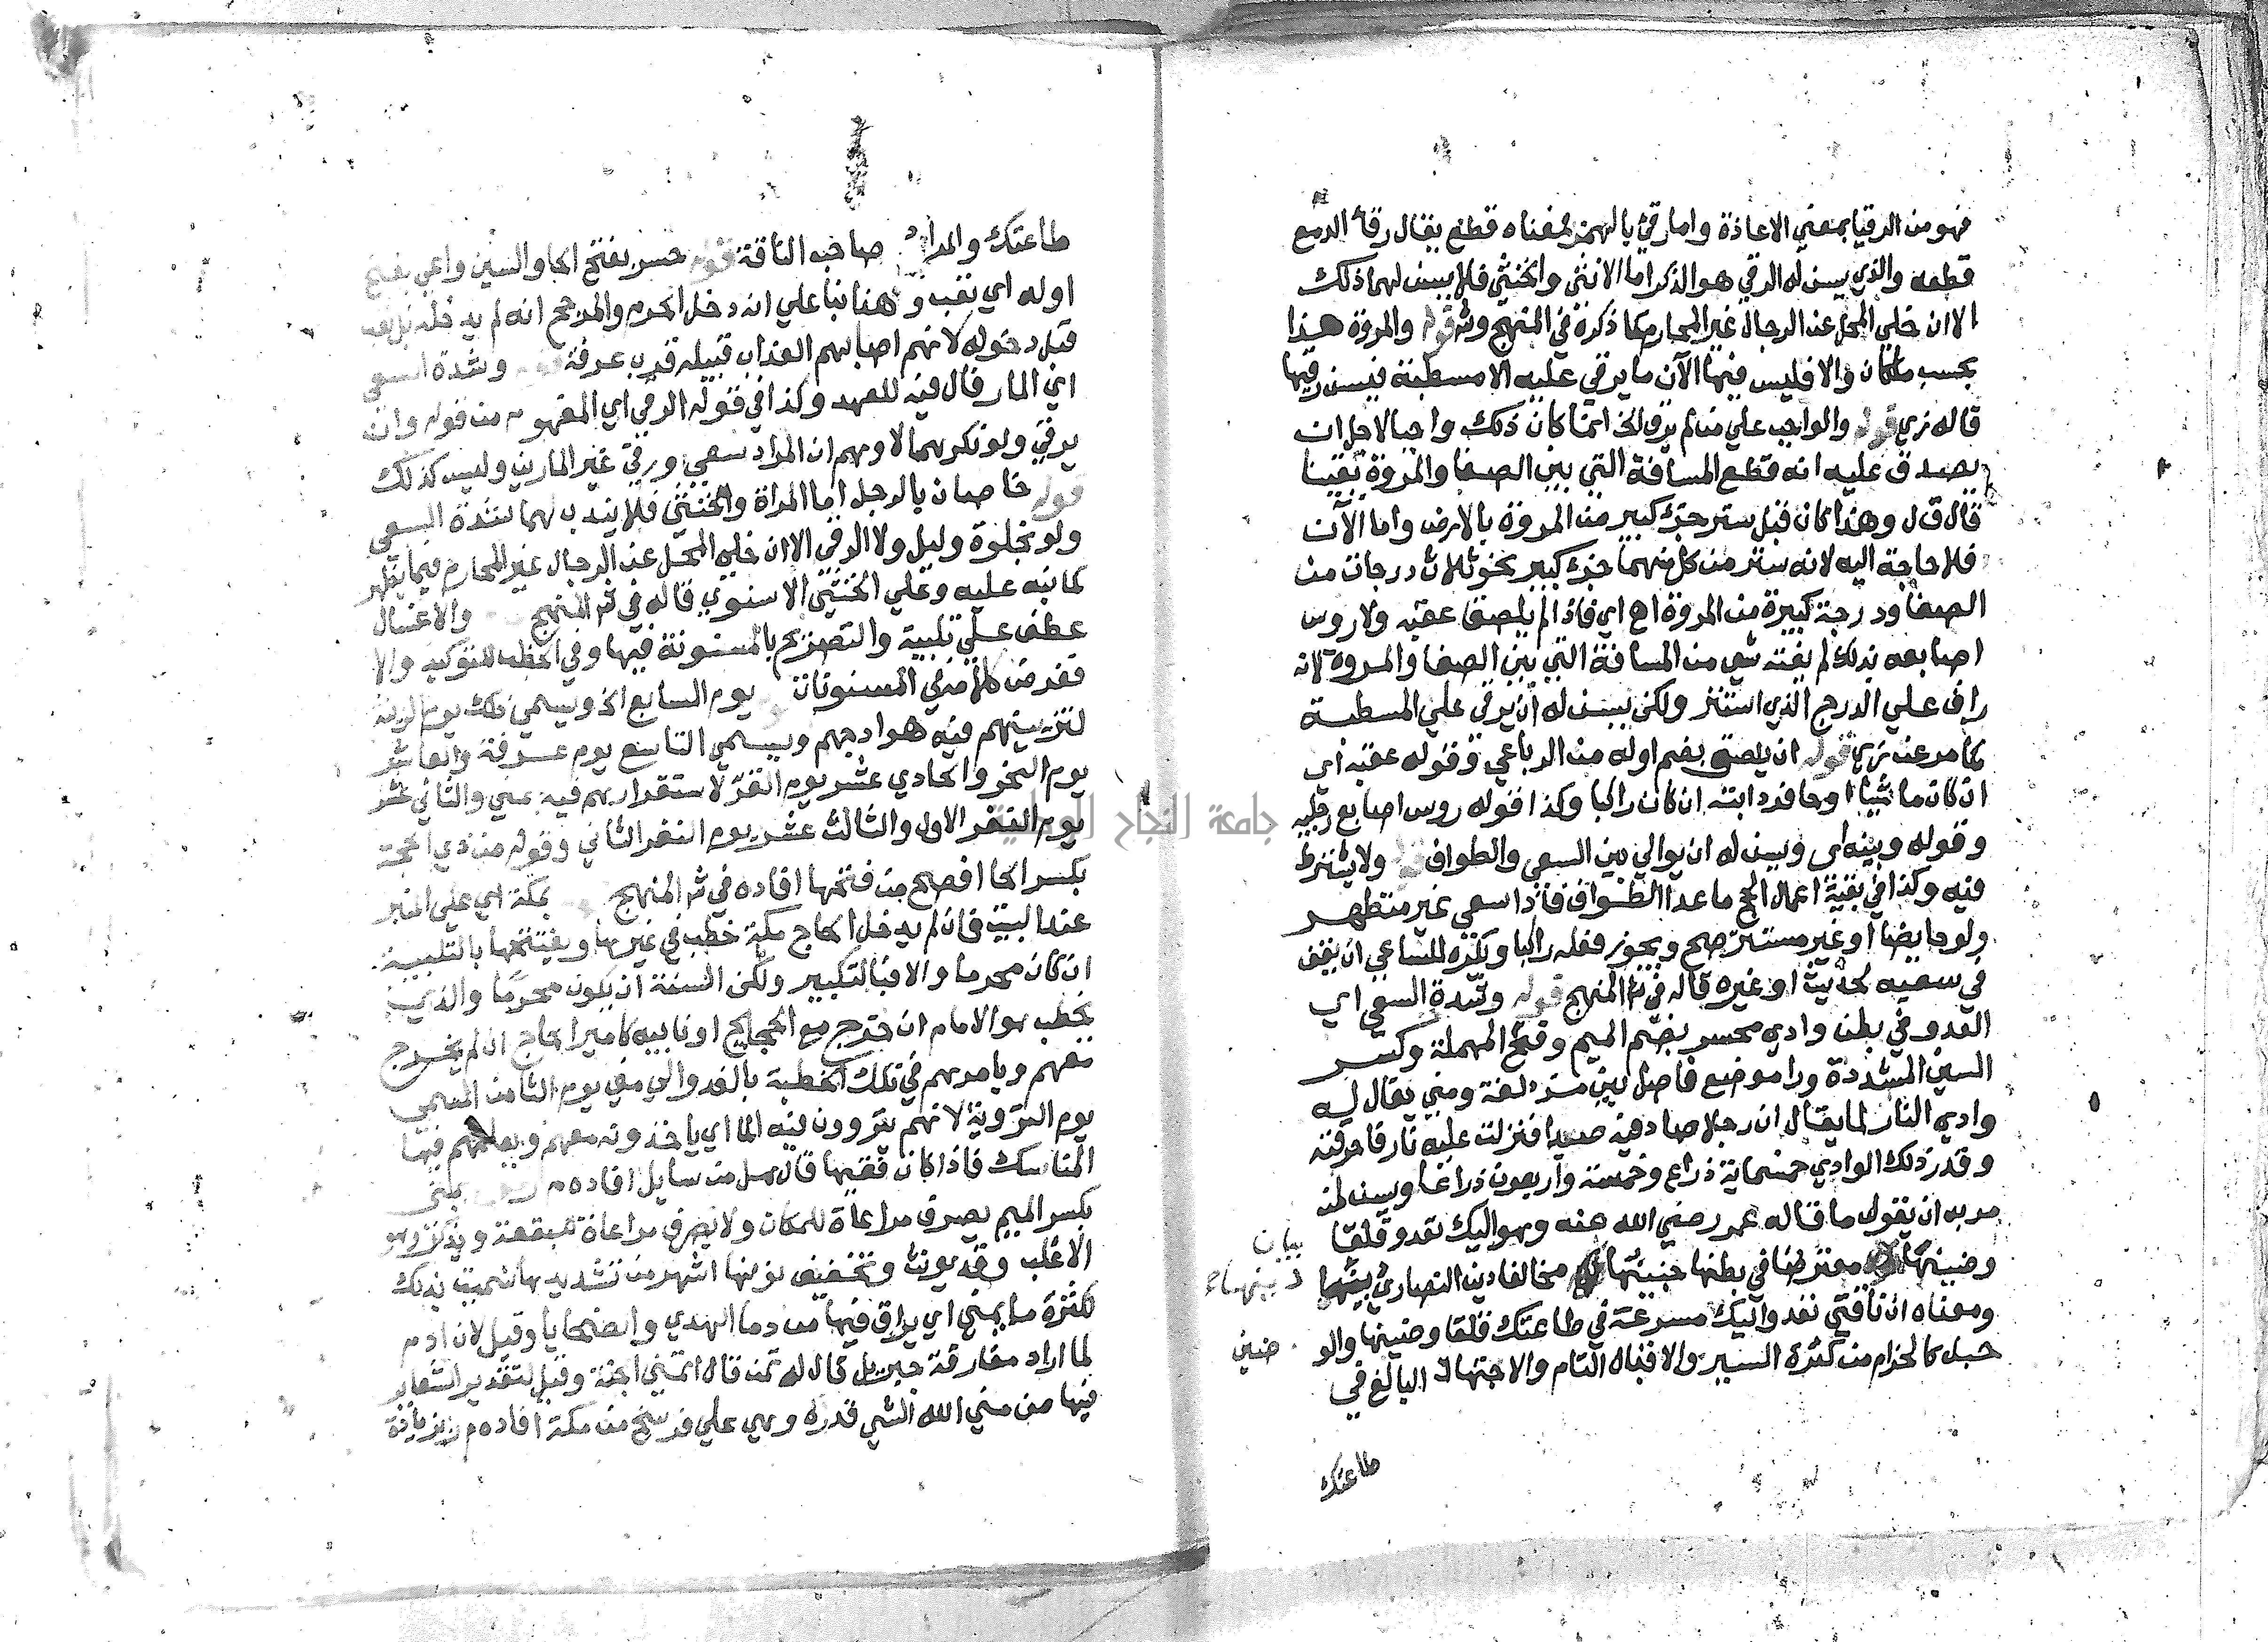 فهو من الرقيا بمعني الاعاذة واما رقئ بالهمز فمعناه قطع يقال رقأ الدمع
قطعه والذي يسن له الرقي هو الذكر اما الانثي والخنثي فلا يسن لهما ذلك
الا ان خلي المحل عند الرجال غير المحارم كما ذكره في المنهج وش قوله والمروة هذا
بحسب ما كان والا فليس فيها الآن ما يرقي عليه الا مسطبة فيسن رقيها
قاله زي قوله والواجب علي من لم يرق الخ انما كان ذلك واجبا لاجل ان
يصدق عليه انه قطع المسافة التي بين الصفا والمروة يقينا
قال ق ل وهذا كان قبل ستر جزء كبير من المروة بالارض واما الآن
فلا حاجة اليه لانه ستر من كل منهما جزء كبير نحو ثلاث درجات من
الصفا ودرجة كبيرة من المروة اه اي فاذا لم يلصق عقبه ولا روس
اصابعه بذلك لم يفته شي من المسافة التي بين الصفا والمروة لانه
راق علي الدرج الذي استتر ولكن يسن له ان يرقي علي المسطبة
كما مر عن زي قوله ان يلصق بضم اوله من الرباعي وقوله عقبه اي
ان كان ماشيا او حافر دابته ان كان راكبا وكذا قوله روس اصابع رجليه
وقوله وبينه اي ويسن له ان يوالي بين السعي والطواف قوله ولا يشترط
فيه وكذا في بقية اعمال الحج ما عدا الطواف فاذا سعي غير متطهر
ولو حايضا او غير مستتر صح ويجوز فعله راكبا ويكره للساعي ان يقف
في سعيه لحديث او غيره قاله في ش المنهج قوله وشدة السعي اي
العدو في بطن وادي محسر بضم الميم وفتح المهملة وكسر
السين المشددة ورا موضع فاصل بين مزدلفة ومني يقال له
وادي النار لما يقال ان رجلا صاد فيه صيدا فنزلت عليه نار فاحرقته
وقدر ذلك الوادي خمسماية ذراع وخمسة واربعون ذراعا ويسن لمن
مر به ان يقول ما قاله عمر رضي الله عنه وهو اليك تعدو قلقا
وضينها معترضا في بطنها جنينها مخالفا دين النصاري دينها
ومعناه ان ناقتي تغدو اليك مسرعة في طاعتك قلقا وضينها والو
حبل كالحزام من كثرة السير والاقبال التام والاجتهاد البالغ في
بيان
دينها
ضنين
طاعتك
طاعتك والمراد صاحب الناقة قوله حسر بفتح الحا والسين واعي بفتح
اوله اي تعب وهذا بنا علي انه دخل الحرم والمرجح انه لم يدخله بل
قبل دخوله لانهم اصابهم العذاب قبيله قرب عرفة قوله وشدة السعي
اي المار فال فيه للعهد وكذا في قوله الرقي اي المفهوم من قوله وان
يرقي ولو نكرهما لاوهم ان المراد سعي ورقي غير المارين وليس كذلك
قوله خاصان بالرجل اما المراة والخنثي فلا يندب لهما شدة السعي
ولو بخلوة وليل ولا الرقي الا ان خلي المحل عند الرجال غير المحارم فيما يظهر
كما نبه عليه وعلي الخنثي الاسنوي قاله في ش المنهج والاغسال
عطف علي تلبية والتصريح بالمسنونة فيها وفي الخطب للتوكيد والا
ففرض كلامه في المسنونات يوم السابع الخ ويسمي ذلك يوم الزينة
لتزيينهم فيه هوادجهم ويسمي التاسع يوم عرفة والعاشر
يوم النحر والحادي عشر يوم القر لاستقرارهم فيه بمني والثاني عشر
يوم النفر الاول والثالث عشر يوم النفر الثاني وقوله من ذي الحجة
بكسر الحا افصح من فتحها افاده في ش المنهج بمكة اي علي المنبر
عند البيت فان لم يدخل الحاج مكة خطب في غيرها ويفتتحها بالتلبية
ان كان محرما والا فبالتكبير ولكن السنة ان يكون محرما والذي
يخطب هو الامام ان خرج مع الحجيج او نايبه كامير الحاج ان لم يخرج
معهم ويامرهم في تلك الخطبة بالغدو الي مني يوم الثامن المسمي
يوم التروية لانهم يتروون فيه الما اي ياخذونه معهم ويعلمهم فيها
المناسك فاذا كان فقيها قال هل من سايل افاده م بمني
بكسر الميم يصرف مراعاة للمكان ولا يصرف مراعاة للبقعة ويذكر وهو
الاغلب وقد يونث وتخفيف نونها اشهر من تشديدها سميت بذلك
لكثرة ما يمني اي يراق فيها من دما الهدي والضحايا وقيل لان ادم
لما اراد مفارقة جبريل قال له تمن قال اتمني الجنة وقيل لتقدير الشعاير
فيها من مني الله الشي قدره وهي علي فرسخ من مكة افاده م بزيادة
جامعة النجاح الوطنية